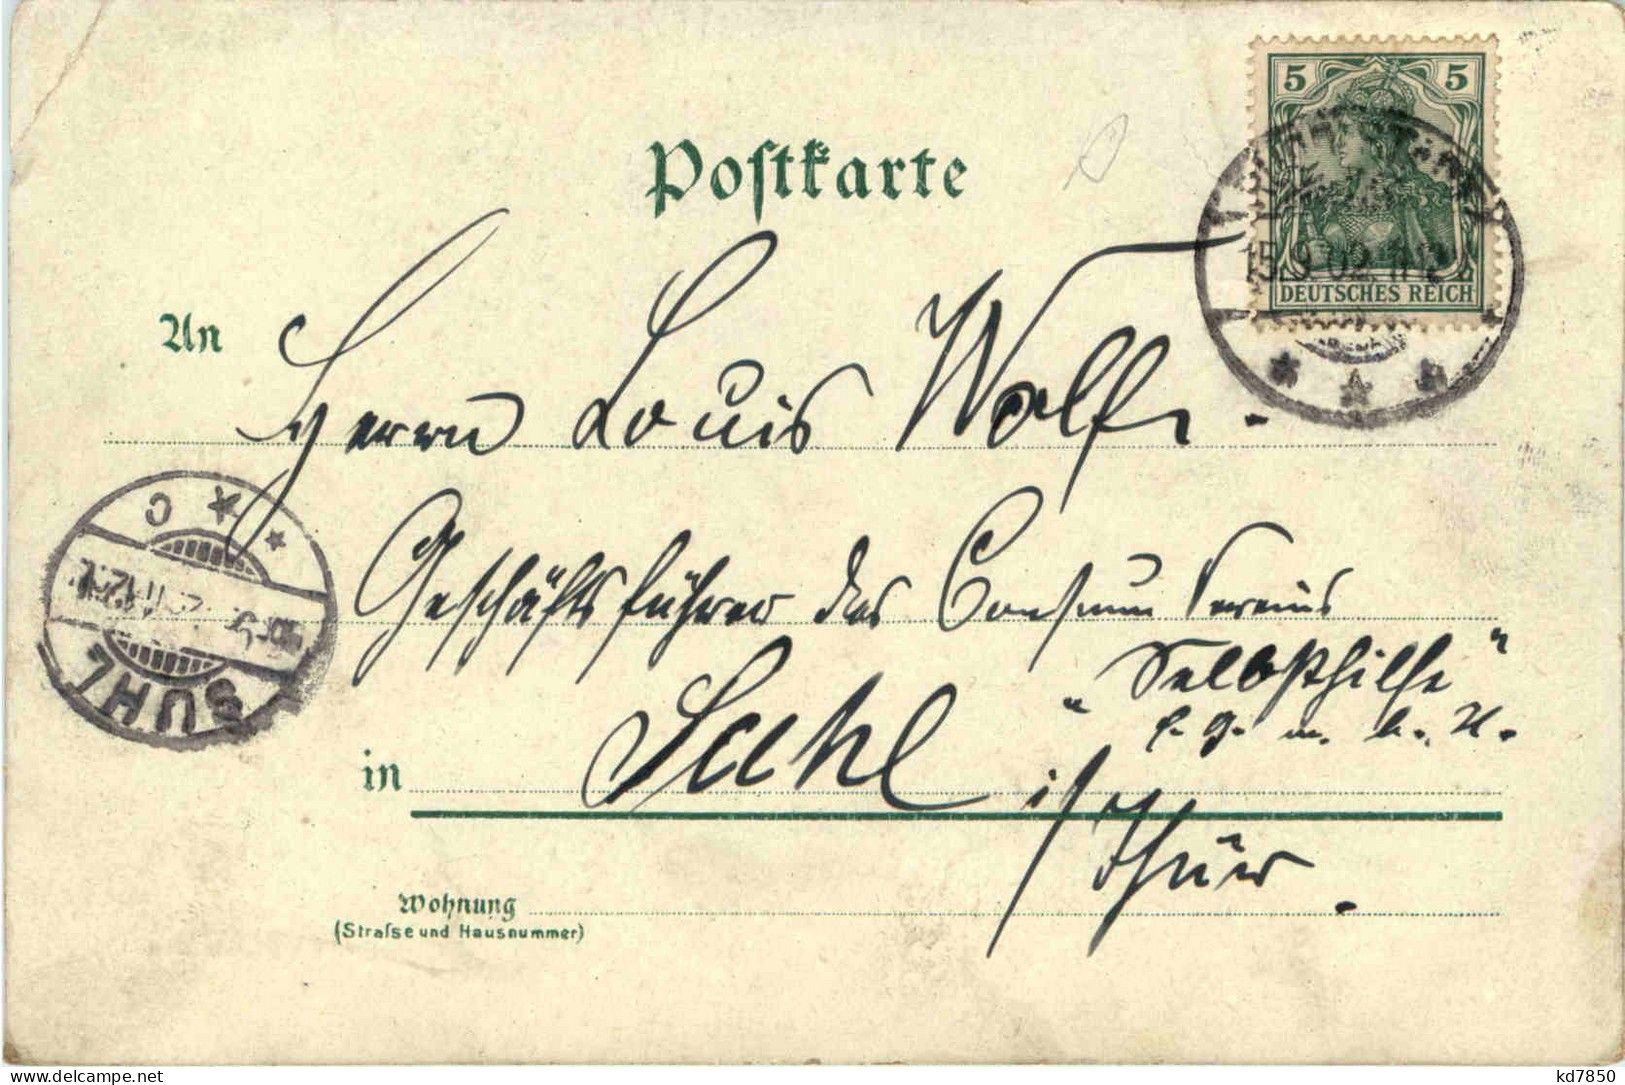 5 5
DEUTSCHES REICH
15.9.02.
Postkarte
An
Herrn Louis Wolf.
Geschäftsführer des Consum Vereins
"Selbsthilfe"
e. G. m. b. H.
in Suhl i/
Thür.
C
SUHL
Wohnung
(Straſse und Hausnummer)
kd7850